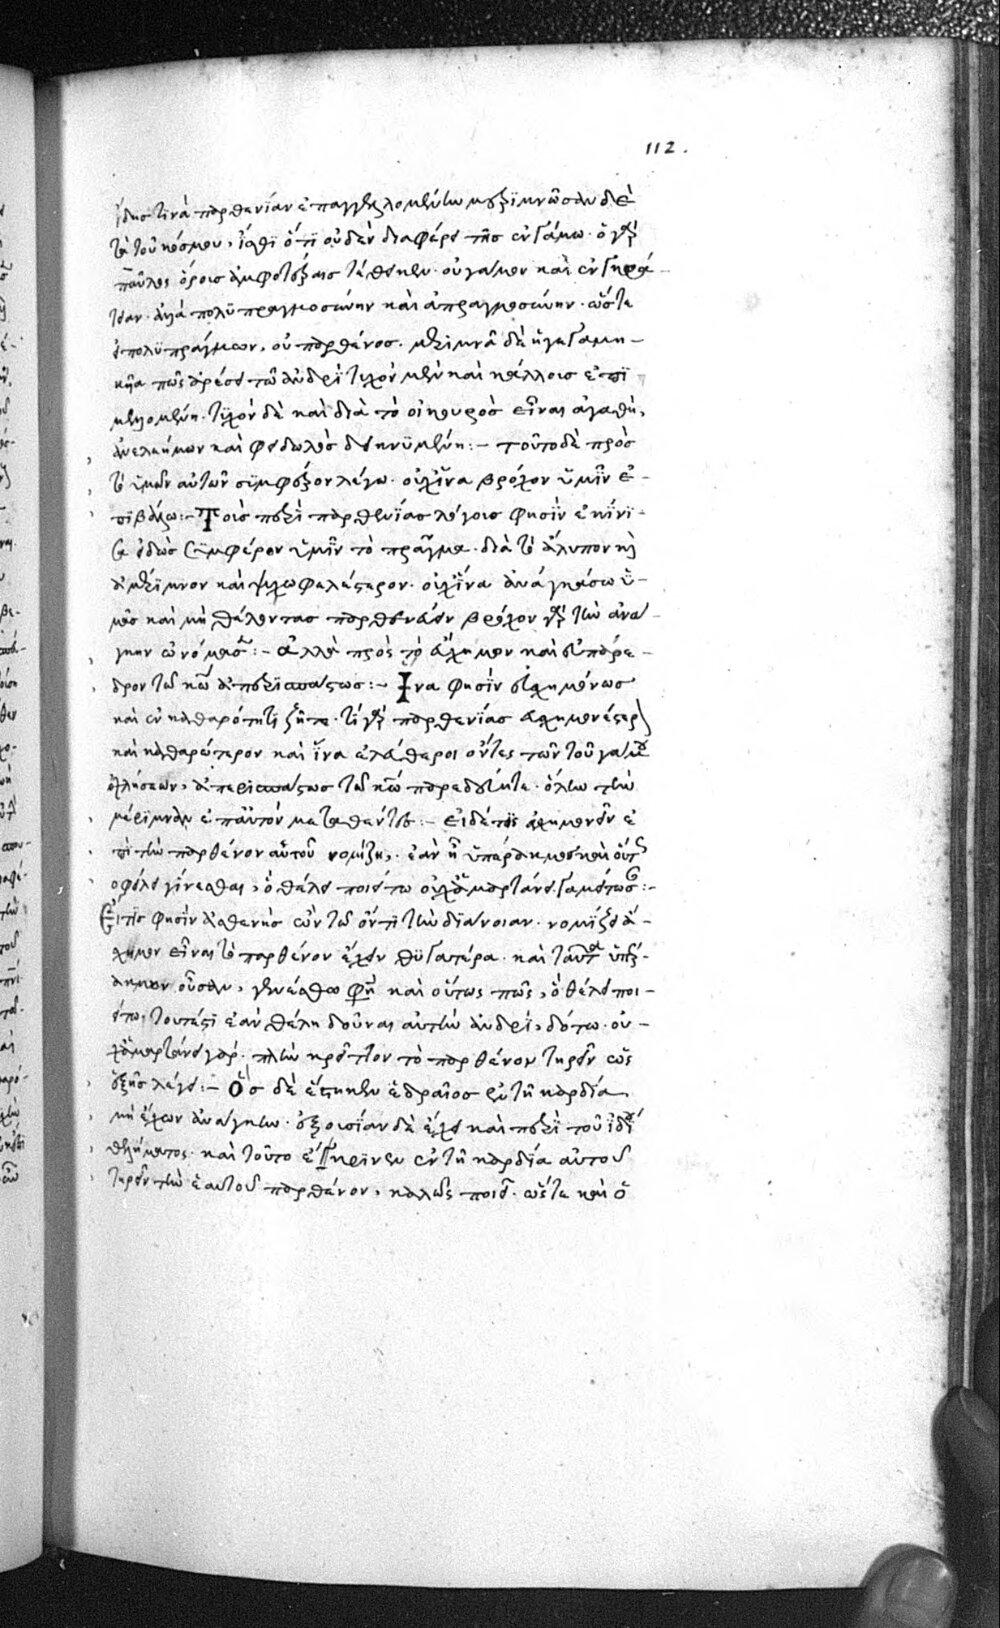 112.
ἴδης τινὰ παρθενίαν ἐπαγγελλομένην μεριμνῶσαν δὲ
τὰ τοῦ κόσμου, ἴσθι ὅτι οὐδὲν διαφέρει τῆς ἐν γάμω· ὁ γὰρ
παῦλος ὅροις ἀμφοτέραις τέθηκεν· οὐ γάμον καὶ ἐγκρά-
τειαν· ἀλλὰ πολυπραγμοσύνην καὶ ἀπραγμοσύνην· ὥστε
ἡ πολυπράγμων, οὐ παρθένος· μεριμνᾶ δὲ ἡ γεγαμη-
κῆα πῶς ἀρέσει τῶ ἀνδρὶ τυχὸν μὲν καὶ κάλλοις ἐπι
μελομένη· τυχὸν δὲ καὶ διὰ τὸ οἰκουρὸς εἶναι ἀγαθὴ,
ἀνελεήμων καὶ φειδωλὸς δεικνυμένη:– τοῦτο δὲ πρὸς
τὸ ὑμῶν αὐτῶν συμφέρον λέγω· οὐχ ἵνα βρόχον ὑμῖν ἐ-
πιβάλω:– Τοὶς περὶ παρθενίας λόγοις φησὶν ἐκίνη-
σα εἰδὼς συμφέρον ὑμῖν τὸ πρᾶγμα· διὰ τὸ ἄλυπον καὶ
ἀμέριμνον καὶ ψυχωφελέστερον· οὐχ ἵνα ἀναγκάσω ὑ-
μᾶς καὶ μὴ θέλοντας παρθενεύειν βρόχον γὰρ τὴν ἀνά-
γκην ὠνόμασε:– ἀλλὰ πρὸς τὸ εὔσχημον καὶ εὐπάρε-
δρον τῶ κω ἀπερισπάστως:– Ἵνα φησὶν εὐσχημόνως
καὶ ἐν καθαρότητι ζῆτε· τί γὰρ παρθενίας εὐσχημονέστερον
καὶ καθαρώτερον καὶ ἵνα ἐλεύθεροι ὄντες τῶν τοῦ γάμου
ὀχλήσεων, ἀπερισπάστως τῶ κω παρεδρεύητε· ὅλην τὴν
μέριμναν ἐπ αὐτὸν μεταθέντες:– εἰ δέ τις ἀσχημονεῖν ἐ
πὶ τὴν παρθένον αὐτοῦ νομίζη, ἐὰν ἦ ὑπέρακμος καὶ οὕτως
ὀφείλει γίνεσθαι, ὃ θέλει ποιείτω οὐχ ἁμαρτάνει γαμείτωσαν:–
Εἴ τις φησὶν ἀσθενὴς ὢν τῶ ὄντι τὴν διάνοιαν· νομίζει ἄ-
σχημον εἶναι τὸ παρθένον ἔχειν θυγατέρα· καὶ ταῦτα ὑπέρ-
ακμον οὖσαν, γενέσθω φη καὶ οὕτως πῶς, ὃ θέλει ποι-
είτω, τουτέστι ἐὰν θέλη δοῦναι αὐτὴν ἀνδρὶ, δότω· οὐ-
χ ἁμαρτάνει γάρ· πλὴν κρεῖττον τὸ παρθένον τηρεῖν ὡς
ἑξῆς λέγει:– Ὃς δὲ ἕστηκεν ἑδραῖος ἐν τῆ καρδία
μὴ ἔχων ἀνάγκην· ἐξουσίαν δὲ ἔχει καὶ περὶ τοῦ ἰδίου
θελήματος· καὶ τοῦτο ἔκρινεν ἐν τῆ καρδία αὐτοῦ
τηρεῖν τὴν ἑαυτοῦ παρθένον, καλῶς ποιεῖ· ὥστε καὶ ὁ